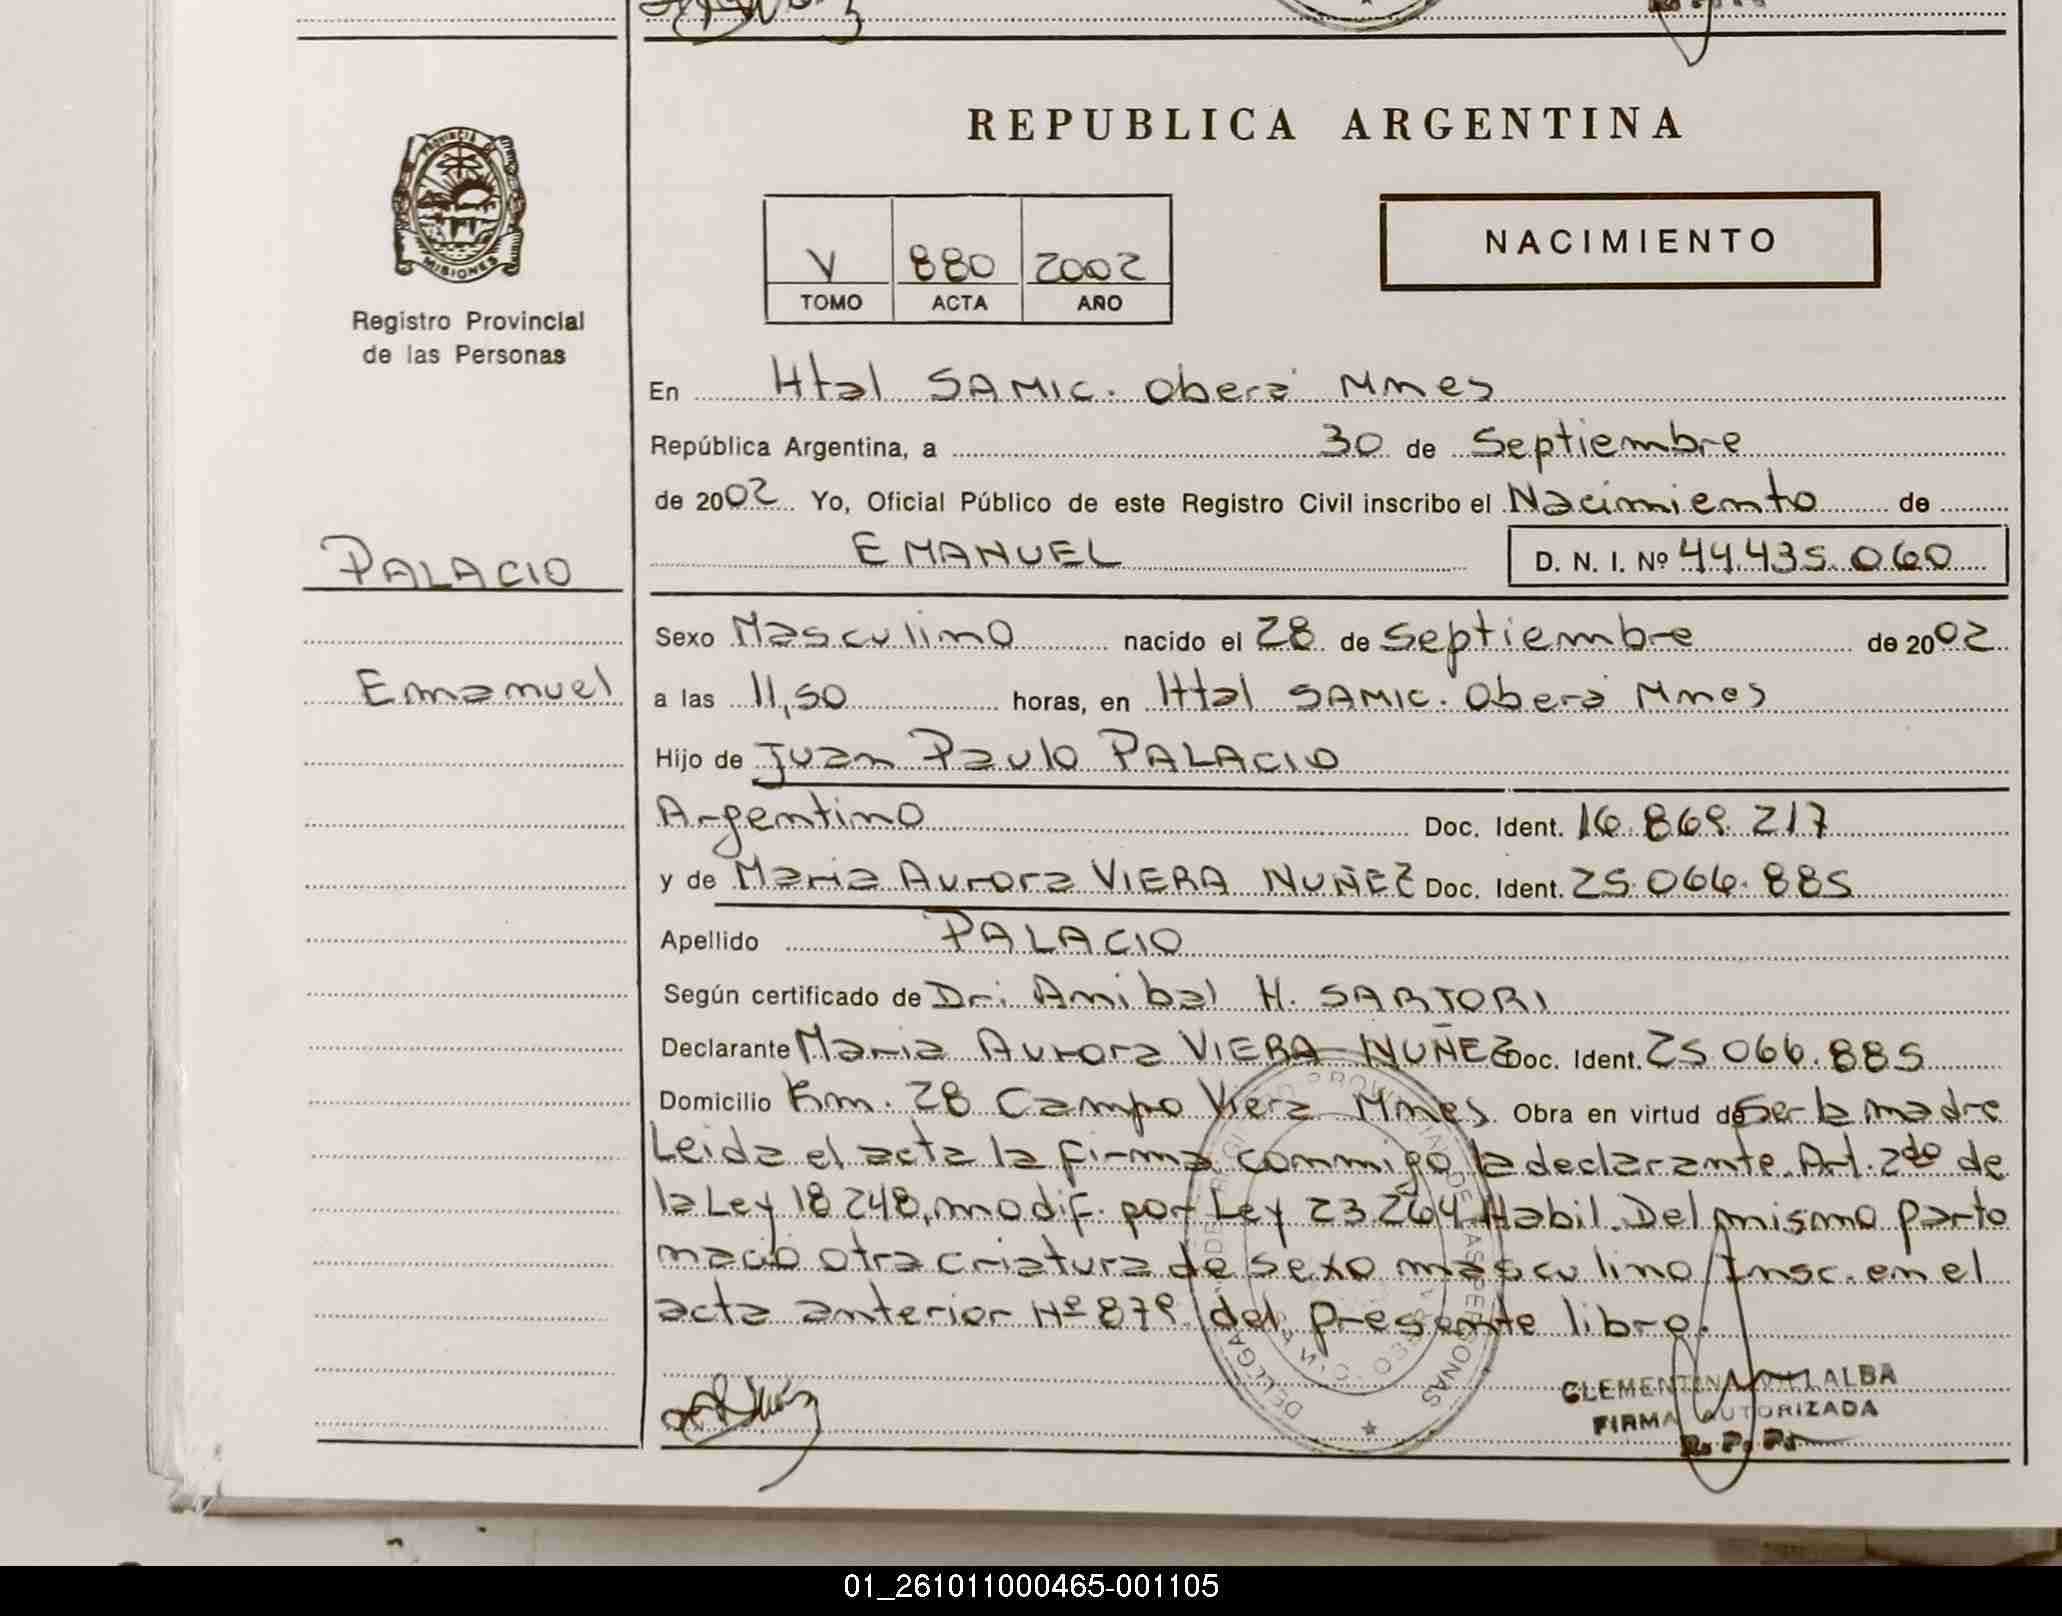 REPUBLICA ARGENTINA
PROVINCIA DE MISIONES
Registro Provincial
de las Personas
V 880 2002
TOMO ACTA AÑO
NACIMIENTO
En Htal SAMIC. Oberá Mnes
República Argentina, a 30 de Septiembre
de 2002 Yo, Oficial Público de este Registro Civil inscribo el Nacimiento de
EMANUEL D. N. I. Nº 44.435.060
PALACIO
Emanuel
Sexo Masculino nacido el 28 de Septiembre de 2002
a las 11,50 horas, en Httal SAMIC. Oberá Mnes
Hijo de Juan Paulo PALACIO
Argentino Doc. Ident. 16.869.217
y de Maria Aurora VIERA NUÑEZ Doc. Ident. 25.066.885
Apellido PALACIO
Según certificado de Dr: Anibal H. SARTORI
Declarante Maria Aurora VIERA NUÑEZ Doc. Ident. 25.066.885
Domicilio Km. 28 Campo Viera Mnes Obra en virtud de Ser la madre
Leida el acta la firma conmigo la declarante. Art. 2do de
la Ley 18248, modif. por Ley 23264 Habil. Del mismo parto
nació otra criatura de sexo masculino Insc. en el
acta anterior Nº 879 del presente libro.
CLEMENTINA VILLALBA
FIRMA AUTORIZADA
R. P. Ps
01_261011000465-001105